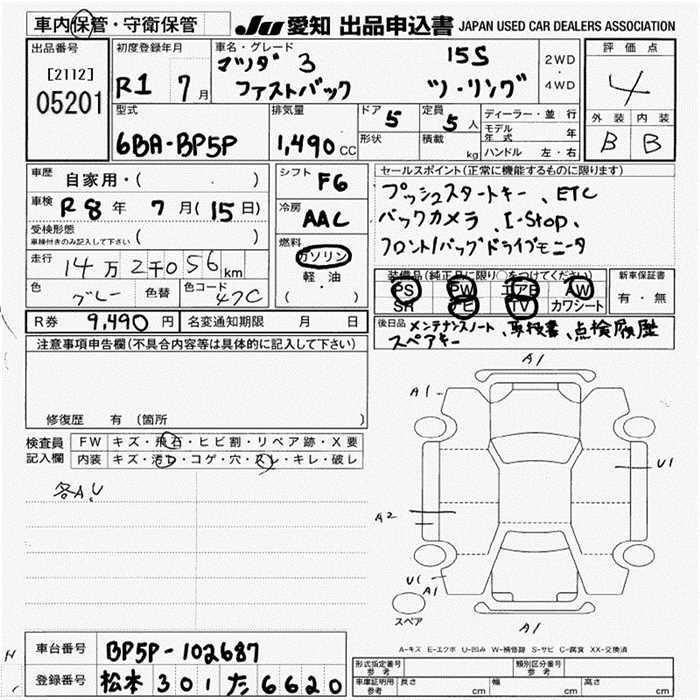 車内保管・守衛保管
JU 愛知 出品申込書 JAPAN USED CAR DEALERS ASSOCIATION
出品番号
[2112]
05201
初度登録年月
R1 7月
車名・グレード
マツダ 3 15S
ファストバック ツーリング
2WD
・
4WD
評価点
4
外装 内装
B B
型式
6BA-BP5P
排気量
1,490 CC
ドア 5
形状
定員 5 人
積載 kg
ディーラー・並行
モデル年式 年
ハンドル 左・右
車歴 自家用・( )
車検 R8年 7月(15日)
受検形態
車検付きのみ記入して下さい ( )
走行 14万2千056km
色 グレー 色替 色コード 47C
シフト F6
冷房 AAC
燃料
ガソリン
軽・油
( )
セールスポイント(正常に機能するものに限ります)
プッシュスタートキー、ETC
バックカメラ、I-Stop、
フロント/バックドライブモニタ
装備品(純正品に限り○をつけてください)
PS PW エアB AW
SR ナビ TV カワシート
新車保証書
有・無
R券 9,490円 名変通知期限 月 日
後日品 メンテナンスノート、取扱書、点検履歴
スペアキー
注意事項申告欄(不具合内容等は具体的に記入して下さい)
修復歴 有(箇所 )
検査員記入欄
FW キズ・飛石・ヒビ割・リペア跡・X要
内装 キズ・汚レ・コゲ・穴・スレ・キレ・破レ
各A.U
A1
A1
U1
A2
U1
A1
A1
スペア
A-キズ E-エクボ U-凹み W-補修跡 S-サビ C-腐食 XX-交換済
車台番号 BP5P-102687
登録番号 松本 301 た 6620
形式指定番号 参考
類別区分番号 参考
車庫証明用 参考 長さ cm 幅 cm 高さ cm